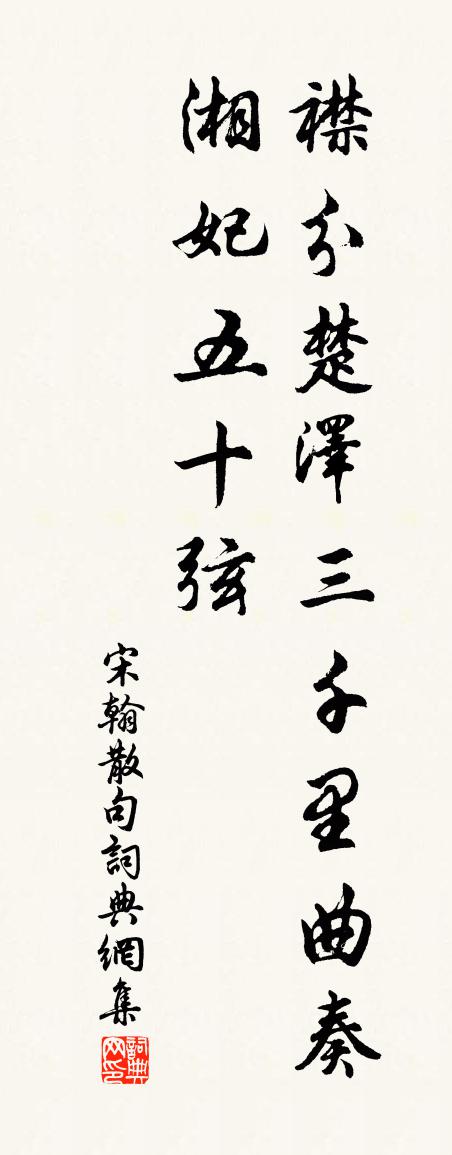 襟分楚澤三千里曲奏
湘妃五十弦
宋翰散句詞典網集
詞典网印